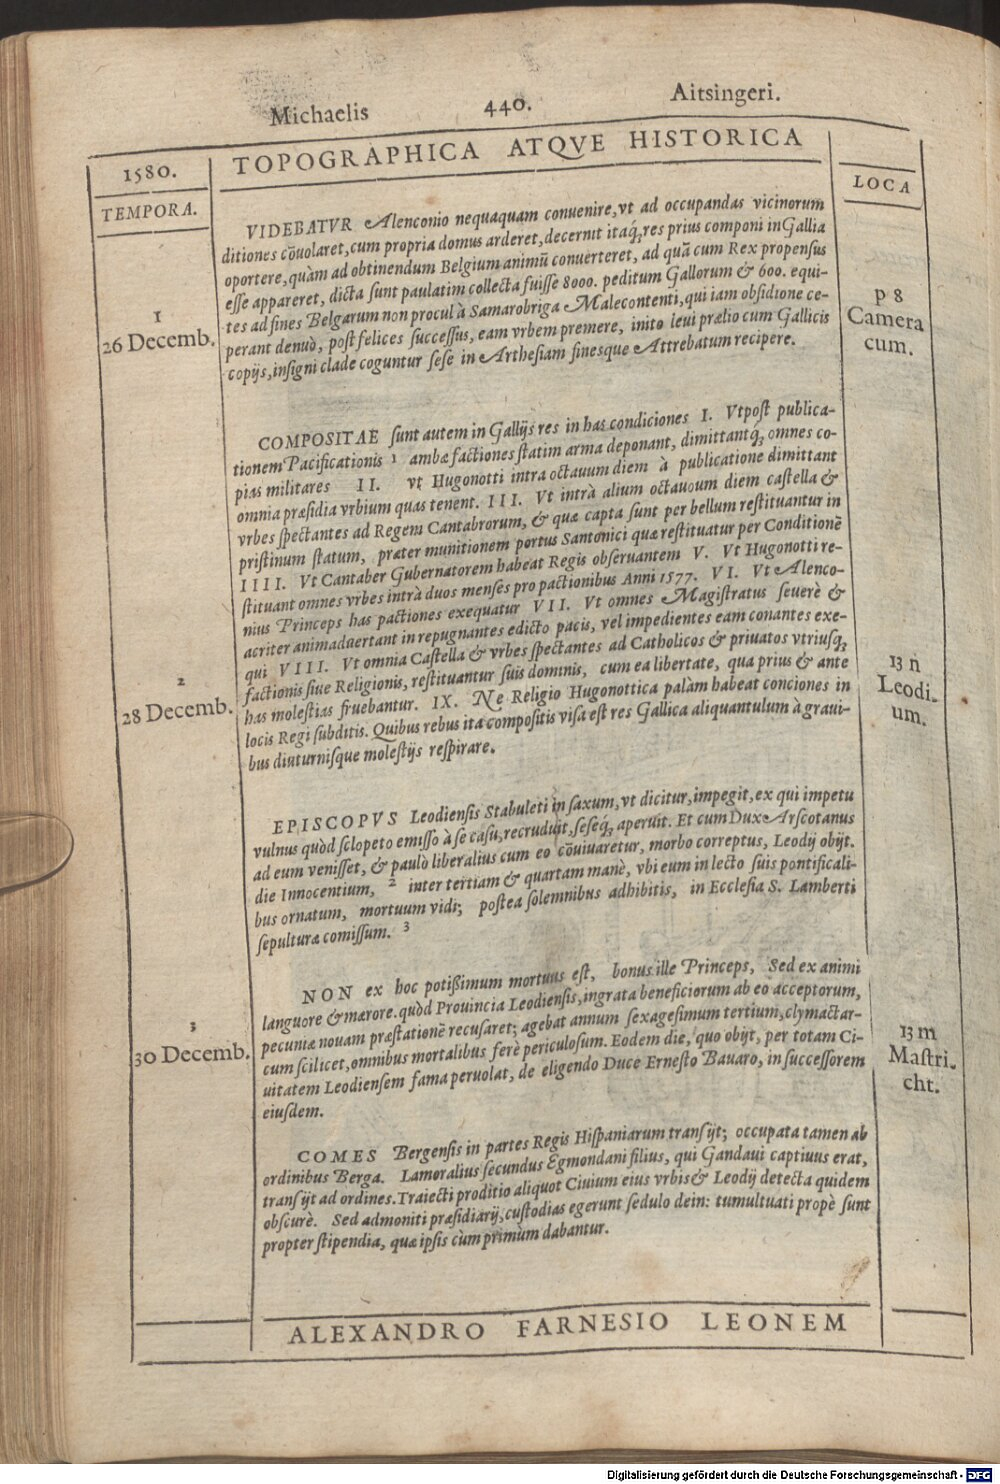 Michaelis 440. Aitsingeri.
1580. TOPOGRAPHICA ATQVE HISTORICA LOCA
TEMPORA.
VIDEBATVR Alenconio nequaquam conuenire, vt ad occupandas vicinorum
ditiones cōuolaret, cum propria domus arderet, decernit itaq; res prius componi in Gallia
oportere, quàm ad obtinendum Belgium animū conuerteret, ad quā cum Rex propensus
esse appareret, dicta sunt paulatim collecta fuisse 8000. peditum Gallorum & 600. equi-
tes ad fines Belgarum non procul à Samarobriga Malecontenti, qui iam obsidione ce-
perant denuò, post felices successus, eam vrbem premere, inito leui prælio cum Gallicis
copijs, insigni clade coguntur sese in Arthesiam finesque Attrebatum recipere.
1
26 Decemb.
p 8
Camera
cum.
COMPOSITAE sunt autem in Gallijs res in has condiciones I. Vt post publica-
tionem Pacificationis 1 ambæ factiones statim arma deponant, dimittantq; omnes co-
pias militares II. vt Hugonotti intra octauum diem à publicatione dimittant
omnia præsidia vrbium quas tenent. III. Vt intrà alium octauoum diem castella &
vrbes spectantes ad Regem Cantabrorum, & quæ capta sunt per bellum restituantur in
pristinum statum, præter munitionem portus Santonici quæ restituatur per Conditionē
IIII. Vt Cantaber Gubernatorem habeat Regis obseruantem V. Vt Hugonotti re-
stituant omnes vrbes intrà duos menses pro pactionibus Anni 1577. VI. Vt Alenco-
nius Princeps has pactiones exequatur VII. Vt omnes Magistratus seuerè &
acriter animaduertant in repugnantes edicto pacis, vel impedientes eam conantes exe-
qui VIII. Vt omnia Castella & vrbes spectantes ad Catholicos & priuatos vtriusq;
factionis siue Religionis, restituantur suis dominis, cum ea libertate, qua prius & ante
has molestias fruebantur. IX. Ne Religio Hugonottica palàm habeat conciones in
locis Regi subditis. Quibus rebus ita compositis visa est res Gallica aliquantulum à graui-
bus diuturnisque molestijs respirare.
2
28 Decemb.
13 n
Leodi-
um.
EPISCOPVS Leodiensis Stabuleti in saxum, vt dicitur, impegit, ex qui impetu
vulnus quòd sclopeto emisso à se casu, recruduit, seseq; aperuit. Et cum Dux Arscotanus
ad eum venisset, & paulò liberalius cum eo cōuiuaretur, morbo correptus, Leodij obijt.
die Innocentium, 2 inter tertiam & quartam manè, vbi eum in lecto suis pontificali-
bus ornatum, mortuum vidi; postea solemnibus adhibitis, in Ecclesia S. Lamberti
sepulturæ comissum. 3
NON ex hoc potißimum mortuus est, bonus ille Princeps, Sed ex animi
languore & mærore. quòd Prouincia Leodiensis, ingrata beneficiorum ab eo acceptorum,
pecuniæ nouam præstationē recusaret; agebat annum sexagesimum tertium, clymactar-
cum scilicet, omnibus mortalibus ferè periculosum. Eodem die, quo obijt, per totam Ci-
uitatem Leodiensem fama peruolat, de eligendo Duce Ernesto Bauaro, in successorem
eiusdem.
3
30 Decemb.
13 m
Mastri-
cht.
COMES Bergensis in partes Regis Hispaniarum transijt; occupata tamen ab
ordinibus Berga. Lamoralius secundus Egmondani filius, qui Gandaui captiuus erat,
transijt ad ordines. Traiecti proditio aliquot Ciuium eius vrbis & Leodij detecta quidem
obscurè. Sed admoniti præsidiarij, custodias egerunt sedulo dein: tumultuati propè sunt
propter stipendia, quæ ipsis cùm primùm dabantur.
ALEXANDRO FARNESIO LEONEM
Digitalisierung gefördert durch die Deutsche Forschungsgemeinschaft - DFG